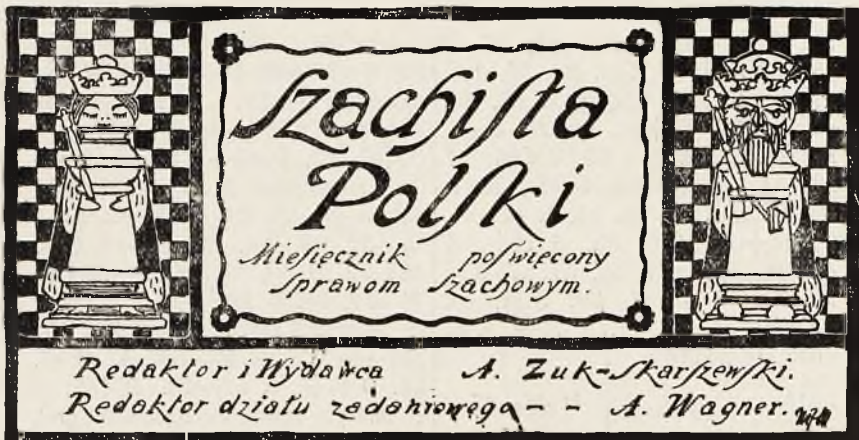 Szachista
Polski
Miesięcznik poświęcony
sprawom szachowym.
Redaktor i Wydawca A. Zuk-Skarszewski.
Redaktor działu zadaniowego - - A. Wagner.